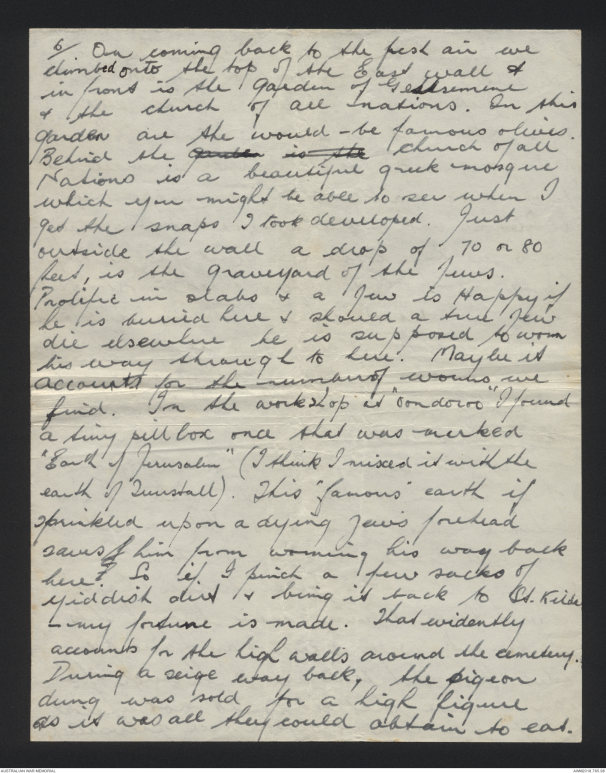 6/ On coming back to the fresh air we
climbed onto the top of the East wall &
in front is the Garden of Gethsemene
& the church of all nations. In this
garden are the would-be famous olives.
Behind the garden is the church of all
Nations is a beautiful greek mosque
which you might be able to see when I
get the snaps I took developed. Just
outside the wall a drop of 70 or 80
feet, is the graveyard of the Jews.
Prolific in slabs & a Jew is Happy if
he is buried here & should a true Jew
die elsewhere he is supposed to worm
his way through to here. Maybe it
accounts for the number of worms we
find. In the workshop at "Oondooroo" I found
a tiny pillbox once that was marked
"Earth of Jerusalem" (I think I mixed it with the
earth of Tunstall). This "famous" earth if
sprinkled upon a dying Jews forehead
saves him from worming his way back
here? So if I pinch a few sacks of
yiddish dirt & bring it back to St. Kilda
- my fortune is made. That evidently
accounts for the high walls around the cemetery.
During a seige way back, the pigeon
dung was sold for a high figure
as it was all they could obtain to eat.
AUSTRALIAN WAR MEMORIAL